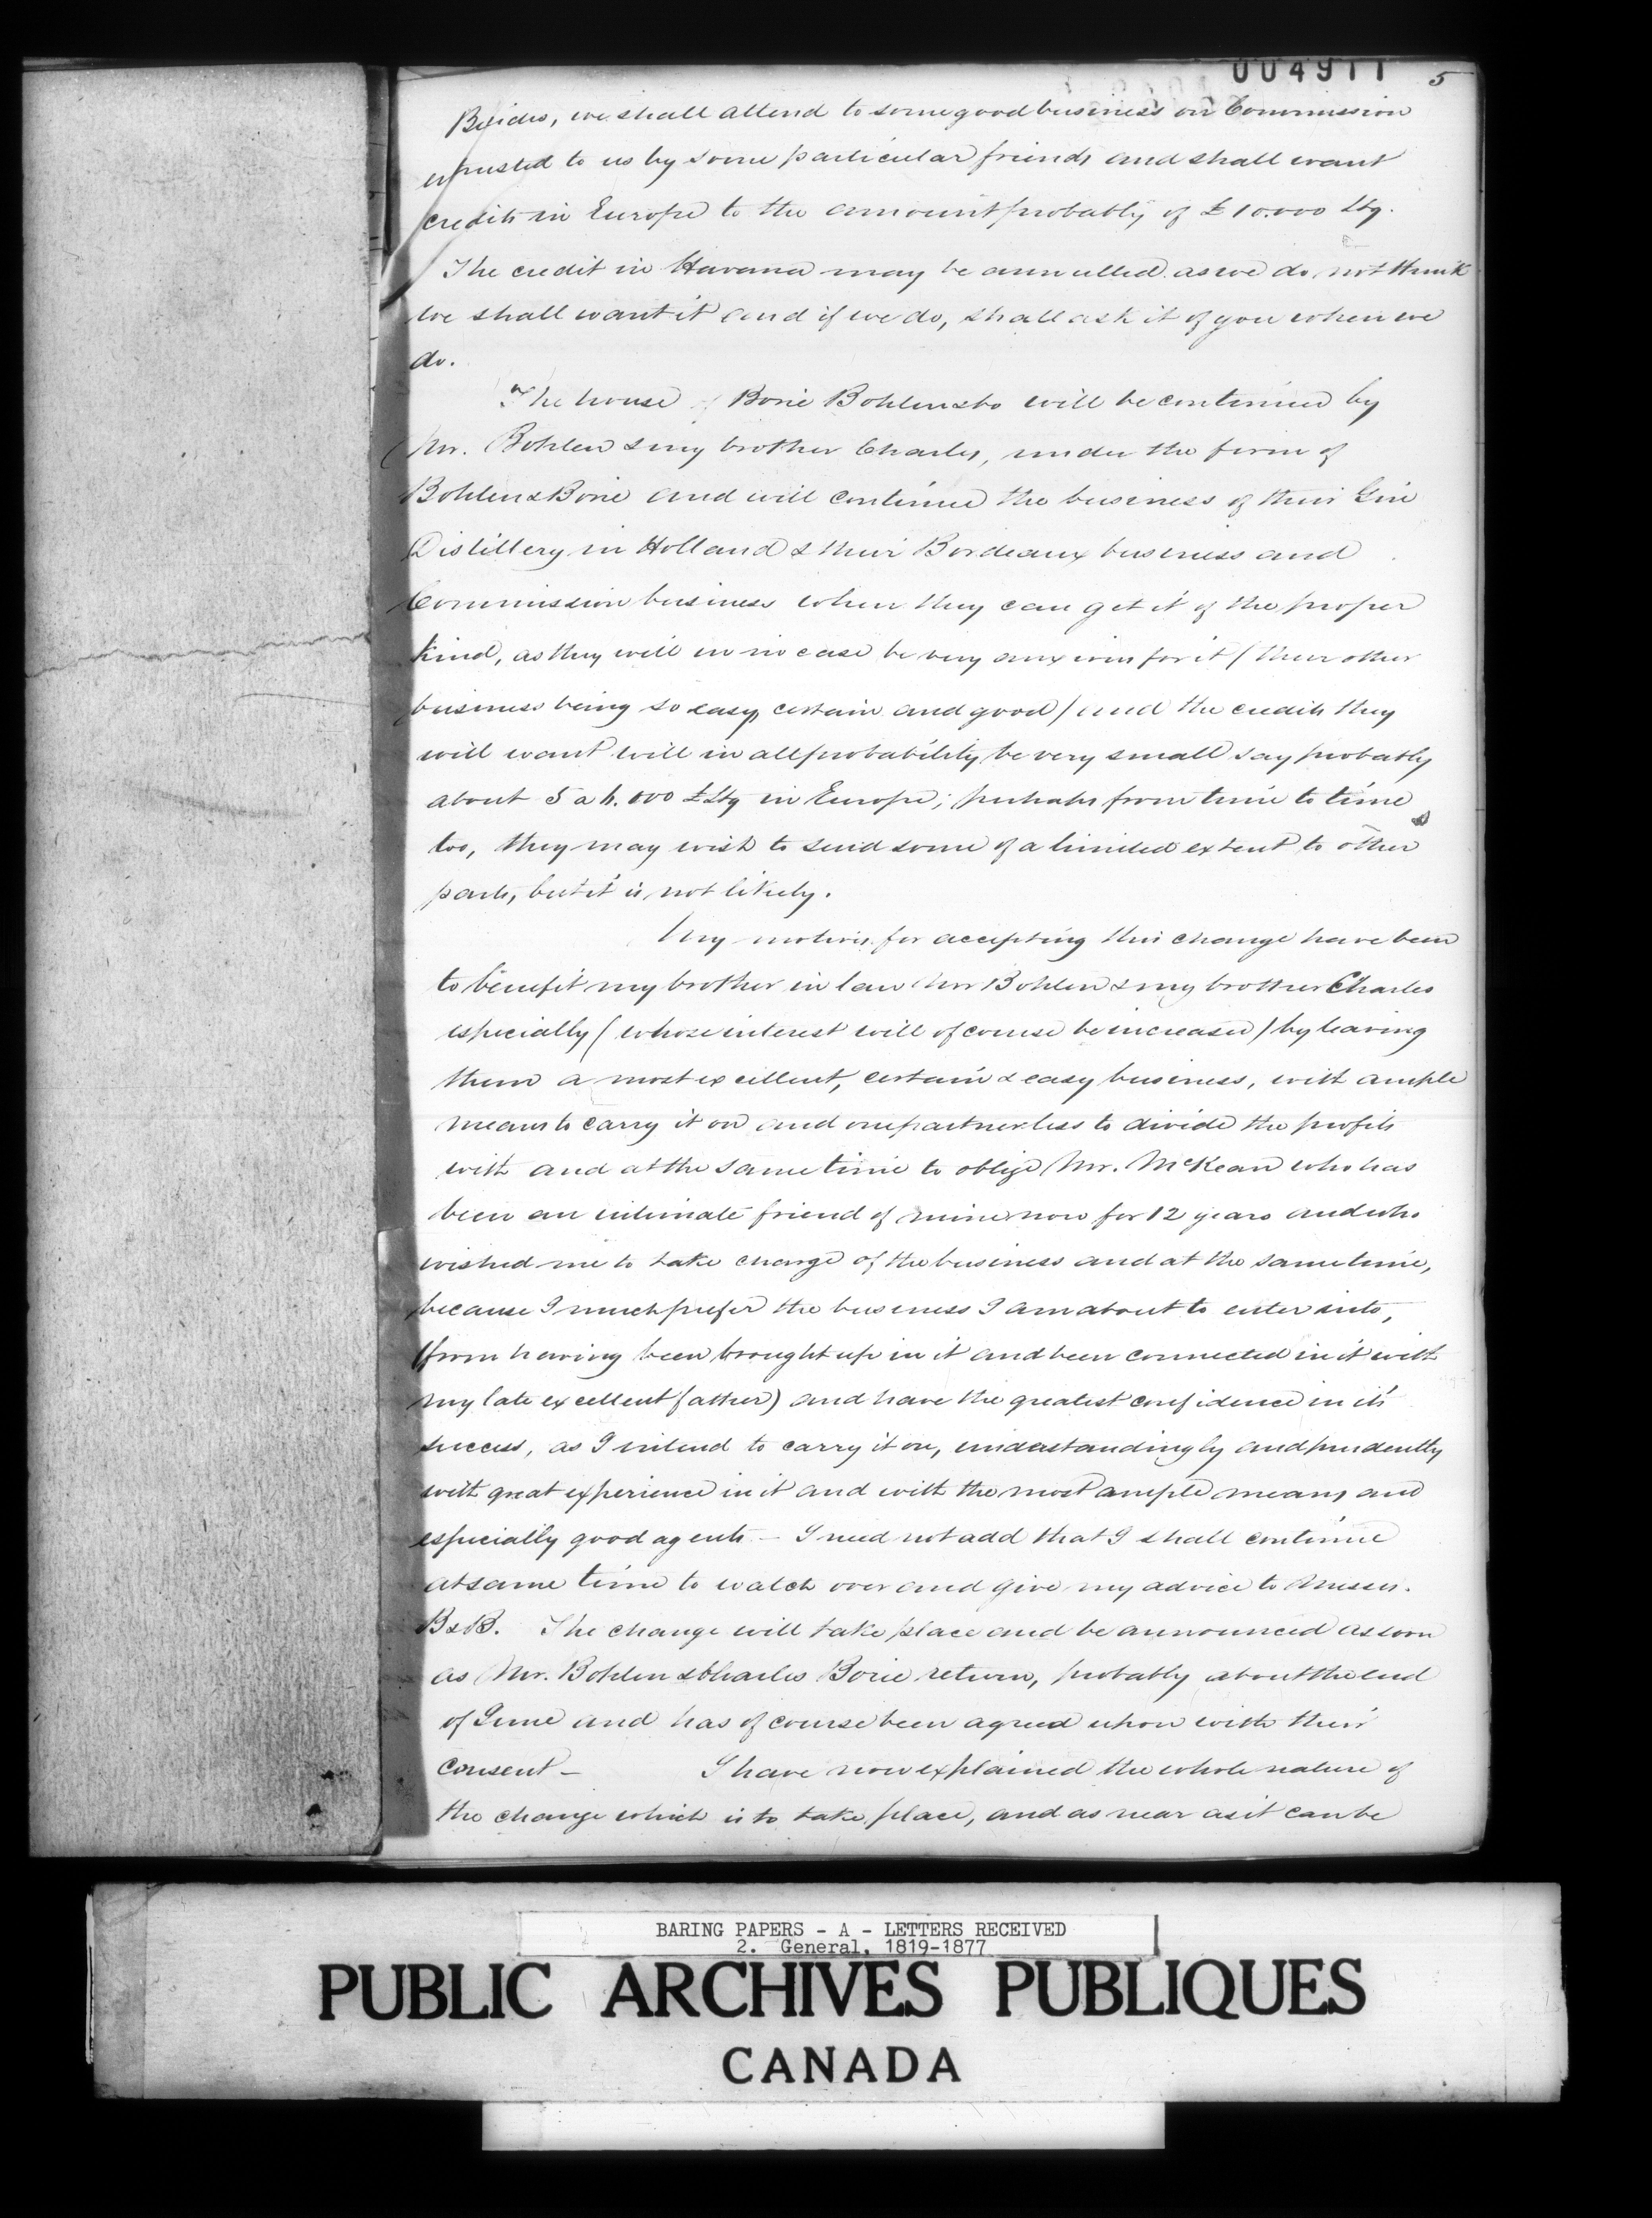 004911 5
Besides, we shall attend to some good business on Commission
entrusted to us by some particular friends and shall want
credits in Europe to the amount probably of £10.000 Stg.
The credit in Havana may be annulled as we do not think
we shall want it and if we do, shall ask it of you when we
do.
The house of Borie Bohlen & Co will be continued by
Mr. Bohlen & my brother Charles, under the firm of
Bohlen & Borie and will continue the business of their Gin
Distillery in Holland & their Bordeaux business and
Commission business when they can get it of the proper
kind, as they will in no case be very anxious for it (their other
business being so easy, certain and good) and the credits they
will want will in all probability be very small say probably
about 5 a 6.000 £ Stg in Europe; perhaps from time to time
too, they may wish to send some of a limited extent to other
parts, but it is not likely.
My motives for accepting this change have been
to benefit my brother in law Mr Bohlen & my brother Charles
especially (whose interest will of course be increased) by leaving
them a most excellent, certain & easy business, with ample
means to carry it on and one partner less to divide the profits
with and at the same time to oblige Mr. McKean who has
been an intimate friend of mine now for 12 years and who
wished me to take charge of the business and at the same time,
because I much prefer the business I am about to enter into,
(from having been brought up in it and been connected in it with
my late excellent father) and have the greatest confidence in its
success, as I intend to carry it on, understandingly and prudently
with great experience in it and with the most ample means and
especially good agents - I need not add that I shall continue
at same time to watch over and give my advice to Messrs.
B & B. The change will take place and be announced as soon
as Mr. Bohlen & Charles Borie return, probably about the end
of June and has of course been agreed upon with their
consent - I have now explained the whole nature of
the change which is to take place, and as near as it can be
BARING PAPERS - A - LETTERS RECEIVED
2. General, 1819-1877
PUBLIC ARCHIVES PUBLIQUES
CANADA